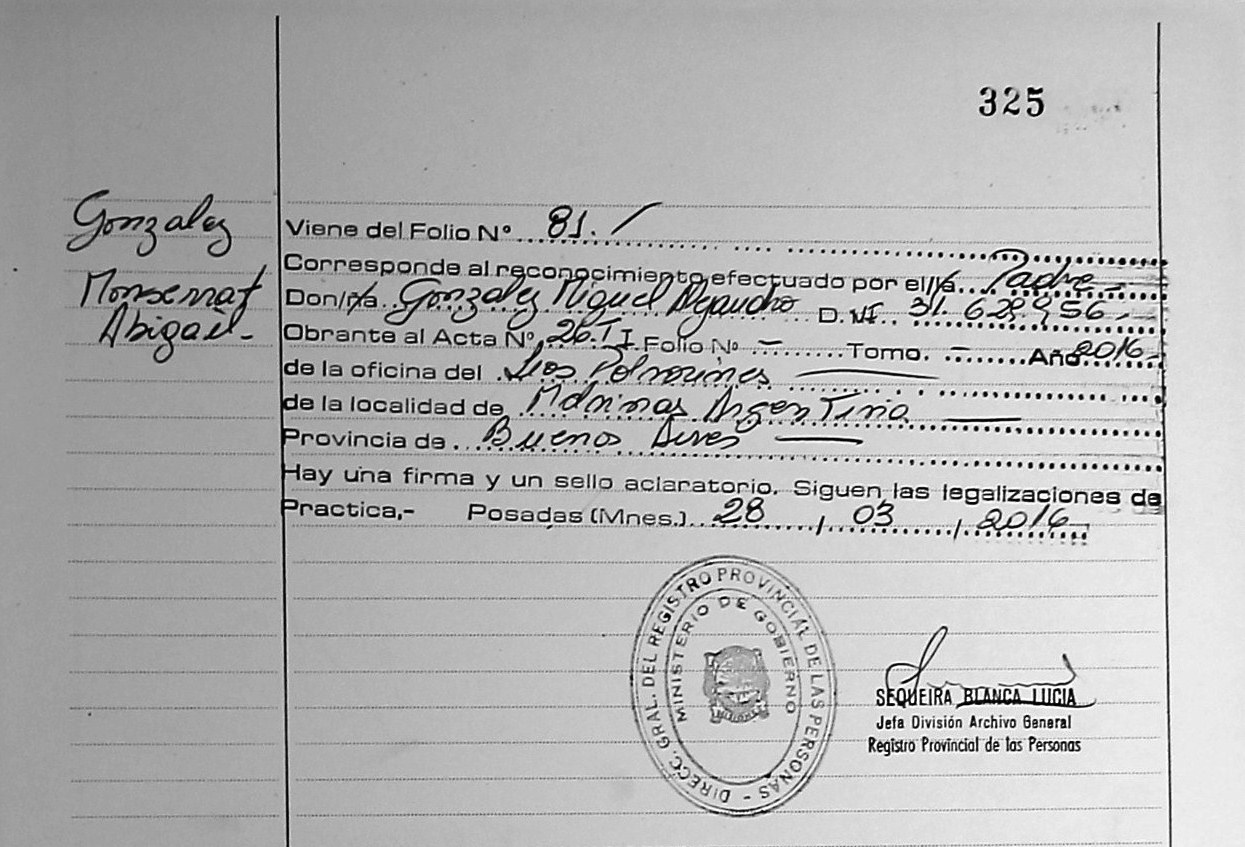 325
Gonzalez
Monserrat
Abigail.-
Viene del Folio Nº 81. /
Corresponde al reconocimiento efectuado por el/la Padre -
Don/ña. Gonzalez Miguel Alejandro D. NI. 31. 628. 956.-
Obrante al Acta Nº 26. TI Folio Nº - Tomo. - Año 2016.
de la oficina del Los Polvorines
de la localidad de Malvinas Argentina
Provincia de Buenos Aires
Hay una firma y un sello aclaratorio. Siguen las legalizaciones de
Practica,- Posadas (Mnes.) 28 / 03 / 2016
DIRECC. GRAL. DEL REGISTRO PROVINCIAL DE LAS PERSONAS -
MINISTERIO DE GOBIERNO
SEQUEIRA BLANCA LUCIA
Jefa División Archivo General
Registro Provincial de las Personas